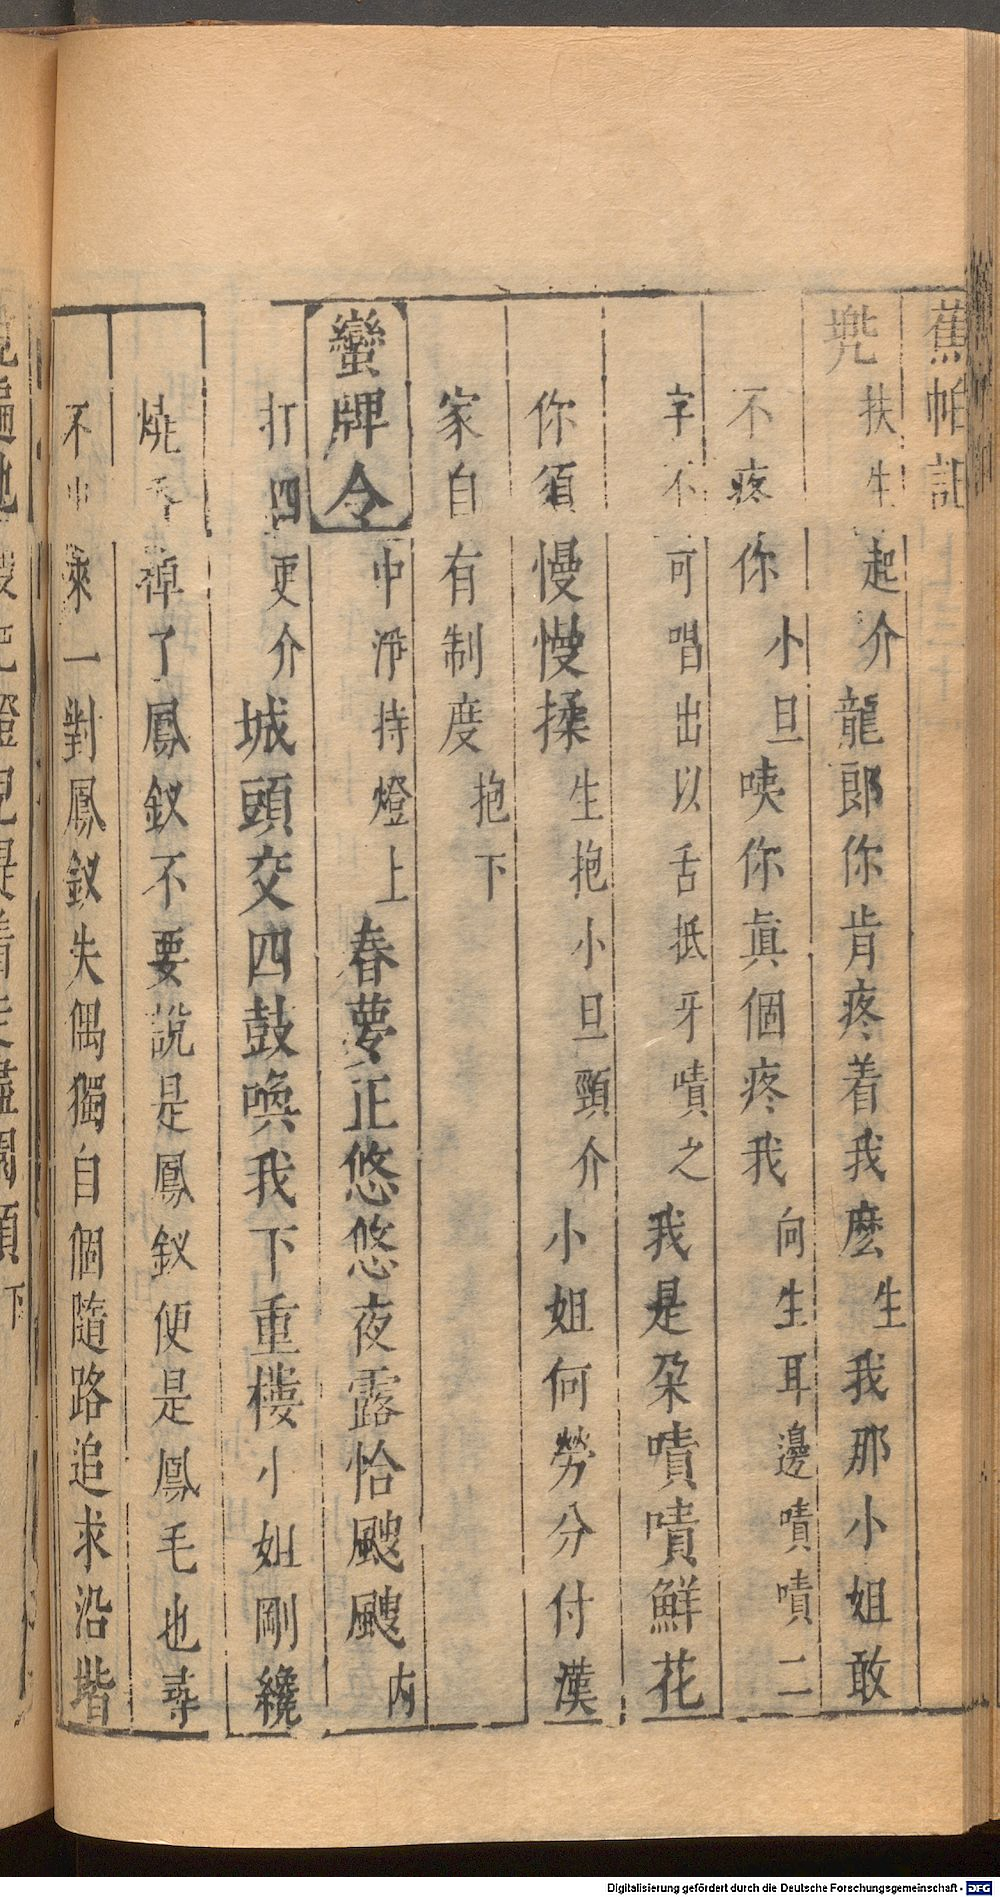 蕉帕記
兠扶生起介龍郎你肯疼着我麽生我那小姐敢
不疼你小旦咦你真個疼我向生耳邊嘖嘖二
字不可唱出以舌抵牙嘖之我是朵嘖嘖鮮花
你須慢慢揉生抱小旦頸介小姐何勞分付漢
家自有制度抱下
蠻牌令中淨持燈上春夢正悠悠夜露恰颼颼内
打四更介城頭交四鼓喚我下重樓小姐剛纔
燒香掉了鳳釵不要說是鳳釵便是鳳毛也尋
不出來一對鳳釵失偶獨自個隨路追求沿堦
Digitalisierung gefördert durch die Deutsche Forschungsgemeinschaft - DFG